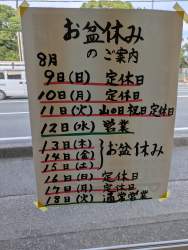 お盆休み
のご案内
8月
9日(日) 定休日
10日(月) 定休日
11日(火) 山の日祝日定休日
12日(水) 営業
13日(木)
14日(金) お盆休み
15日(土)
16日(日) 定休日
17日(月) 定休日
18日(火) 通常営業